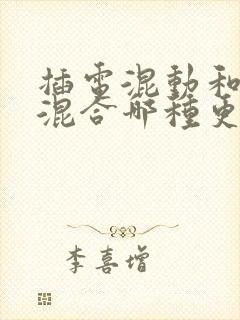 插電混動和
混合哪種更
李喜增